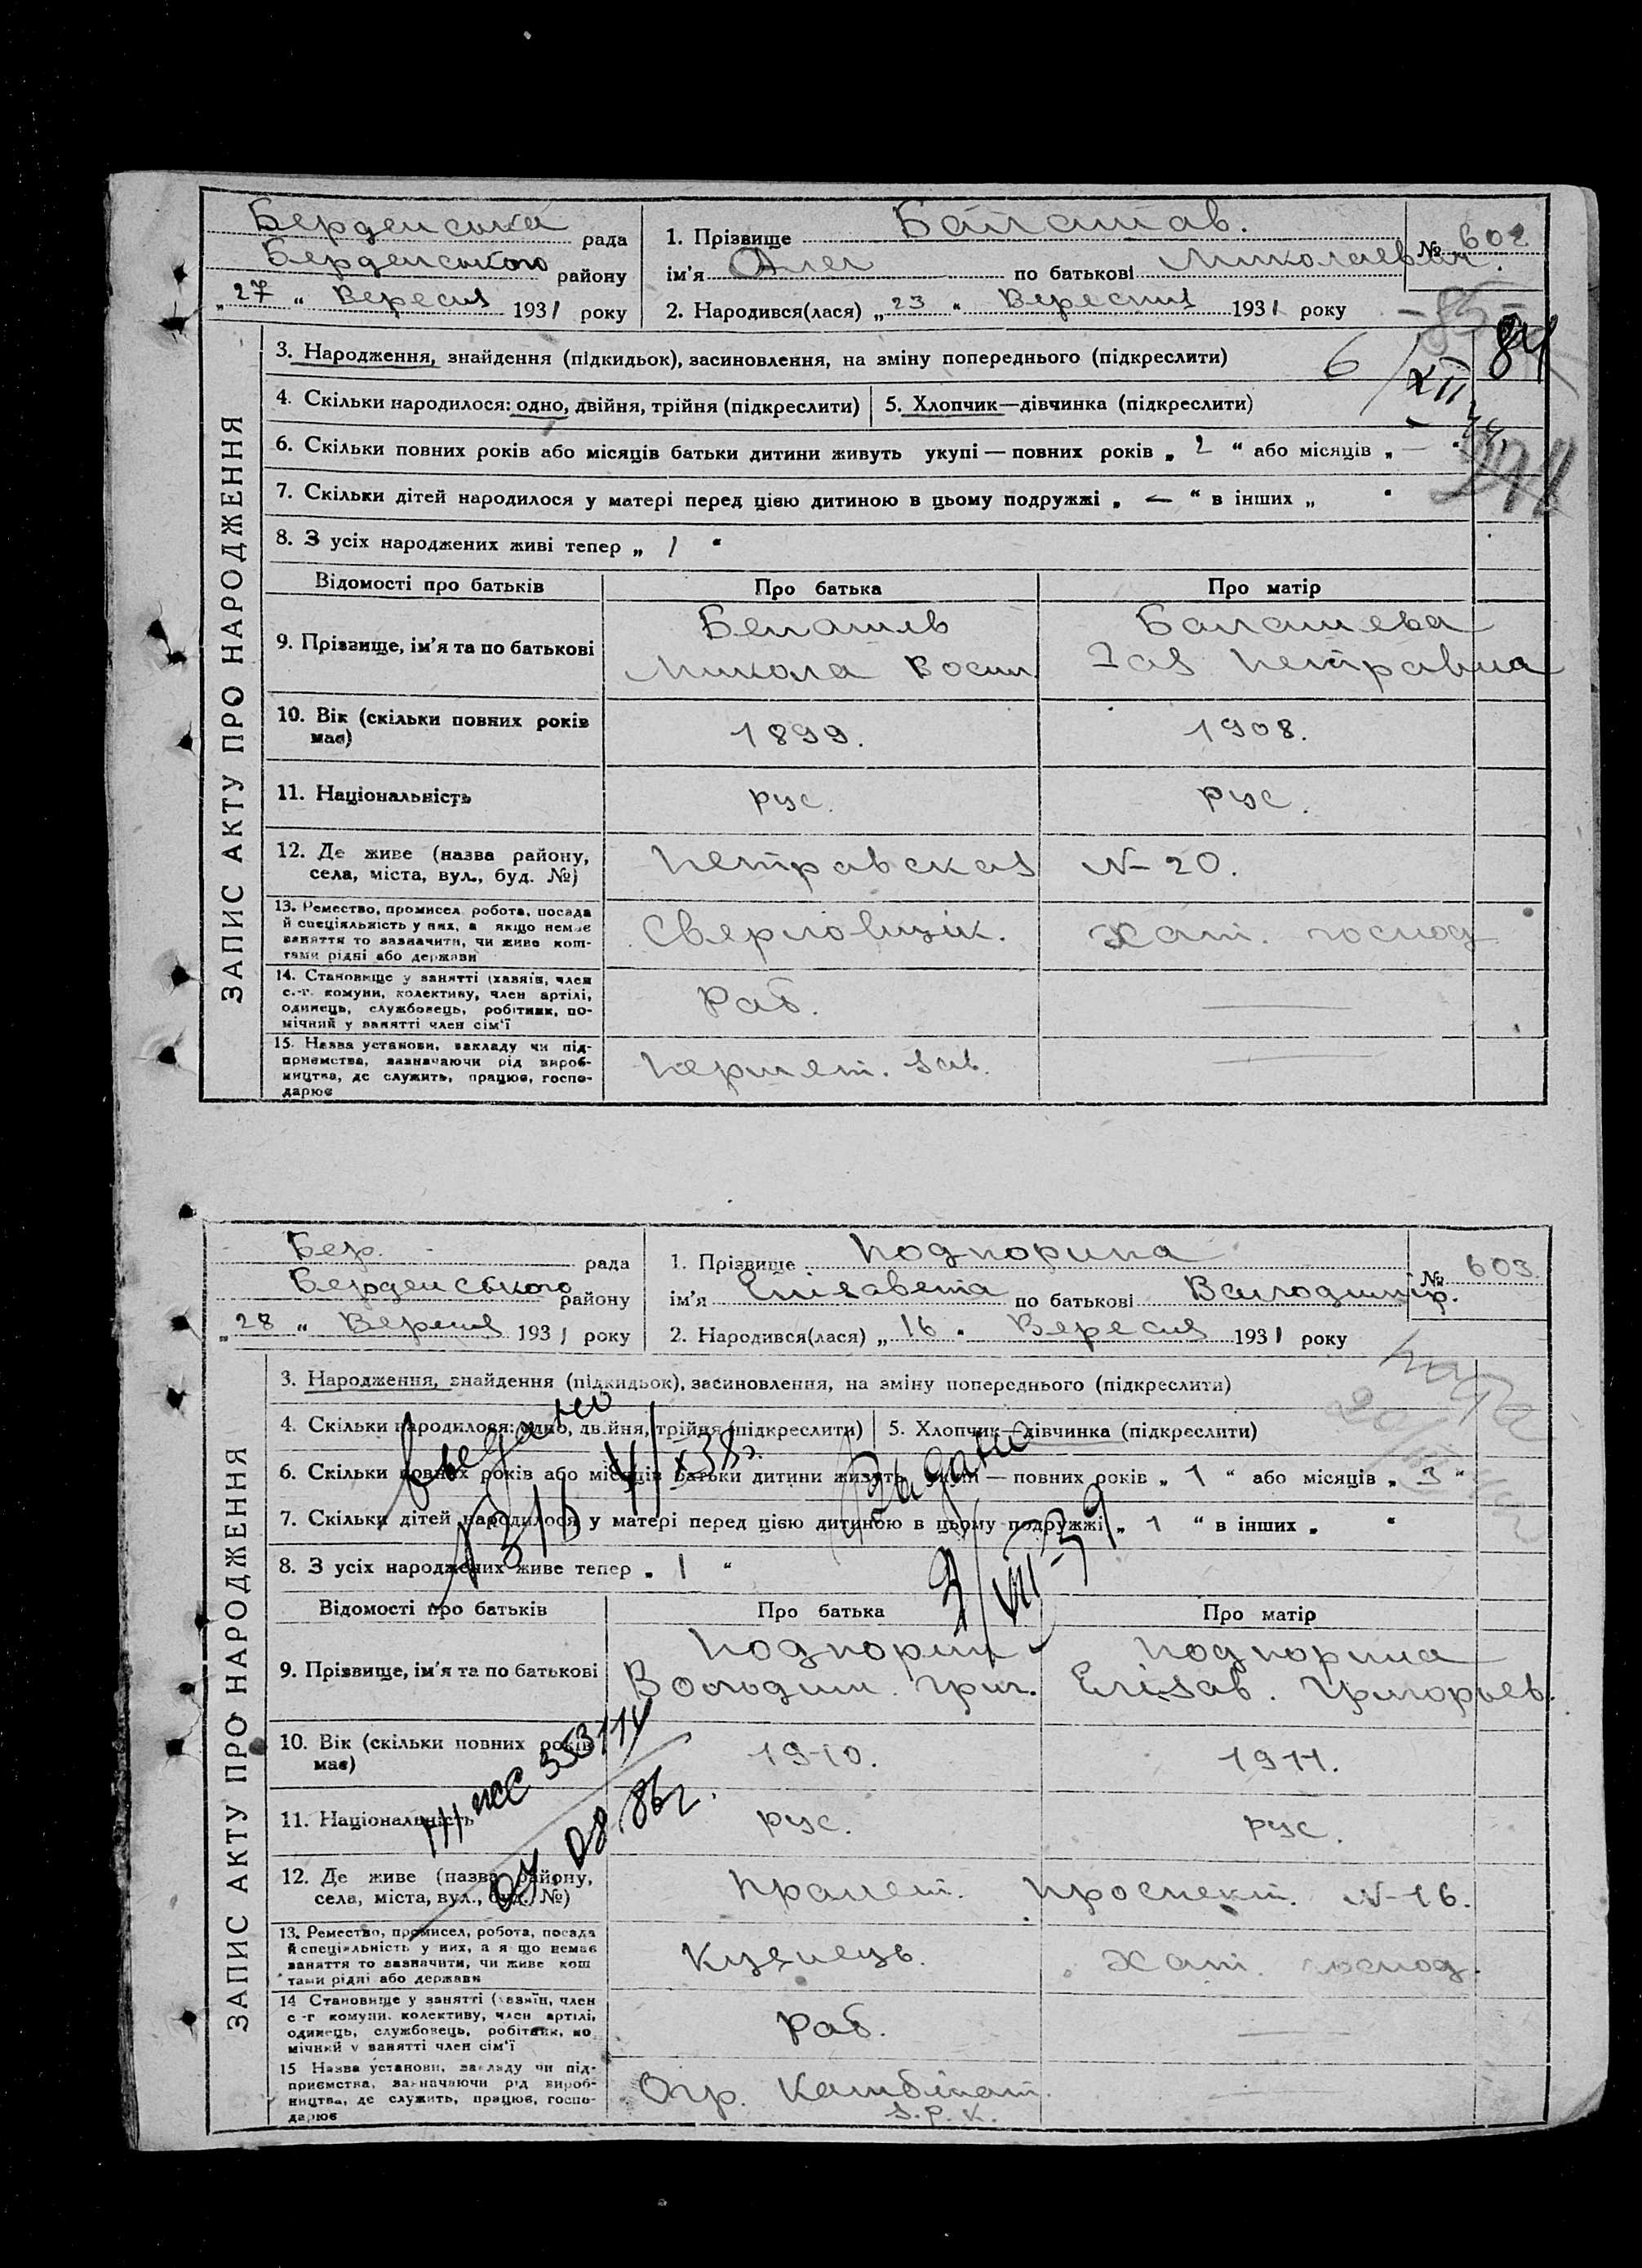 Берденська рада
Берденського району
„27“ Вересня 1931 року
1. Прізвище Балашав.
№ 602
ім'я Олег по батькові Миколаевич.
2. Народився(лася) „23“ Вересния 1931 року
ЗАПИС АКТУ ПРО НАРОДЖЕННЯ
3. Народження, знайдення (підкидьок), засиновлення, на зміну попереднього (підкреслити)
6/XII
84
4. Скільки народилося: одно, двійня, трійня (підкреслити) 5. Хлопчик—дівчинка (підкреслити)
6. Скільки повних років або місяців батьки дитини живуть укупі — повних років „ 2 “ або місяців „ — “
7. Скільки дітей народилося у матері перед цією дитиною в цьому подружжі „ — “ в інших „ “
8. З усіх народжених живі тепер „ 1 “
Відомості про батьків Про батька Про матір
9. Прізвище, ім'я та по батькові
Балашева
Микола Восил. Зая Петравна
10. Вік (скільки повних років має) 1899. 1908.
11. Національність рус. рус.
12. Де живе (назва району, села, міста, вул., буд. №) Петравская N-20.
13. Ремество, промисел, робота, посада
й спеціяльність у них, а якщо немає
заняття то зазначити, чи живе кош-
тами рідні або держави
Сверловщік. Хат. господ
14. Становище у занятті (хазяїн, член
с.-г. комуни, колективу, член артілі,
одинець, службовець, робітник, по-
мічний у занятті член сім'ї
Раб. —
15. Назва установи, закладу чи під-
приємства, зазначаючи рід вироб-
ництва, де служить, працює, госпо-
дарює
Першет. зав. —
Бер. рада
Берденського району
„28“ Вересня 1931 року
1. Прізвище Подпорина
№ 603
ім'я Елізавета по батькові Валодимір.
2. Народився(лася) „16“ Вересня 1931 року
ЗАПИС АКТУ ПРО НАРОДЖЕННЯ
3. Народження, знайдення (підкидьок), засиновлення, на зміну попереднього (підкреслити)
4. Скільки народилося: одно, двійня, трійня (підкреслити) 5. Хлопчик—дівчинка (підкреслити)
6. Скільки повних років або місяців батьки дитини живуть укупі — повних років „ 1 “ або місяців „ 3 “
Выдано
7. Скільки дітей народилося у матері перед цією дитиною в цьому подружжі „ 1 “ в інших „ “
VIII-39
8. З усіх народжених живе тепер „ 1 “
Відомості про батьків Про батька Про матір
9. Прізвище, ім'я та по батькові
Подпорин Подпорина
Володим. Григ. Елізав. Григорьев.
10. Вік (скільки повних років має) 1910. 1911.
353114
08 86г.
11. Національність рус. рус.
12. Де живе (назва району, села, міста, вул., буд. №) Пралет. проспект. N-16.
13. Ремество, промисел, робота, посада
й спеціяльність у них, а якщо немає
заняття то зазначити, чи живе кош
тами рідні або держави
Кузнець. Хат. господ.
14 Становище у занятті (хазяїн, член
с-г комуни, колективу, член артілі,
одинець, службовець, робітник, по
мічний у занятті член сім'ї
Раб. —
15 Назва установи, закладу чи під-
приємства, зазначаючи рід вироб-
ництва, де служить, працює, госпо-
дарює
Огр. Камбінат.
з.р.к.